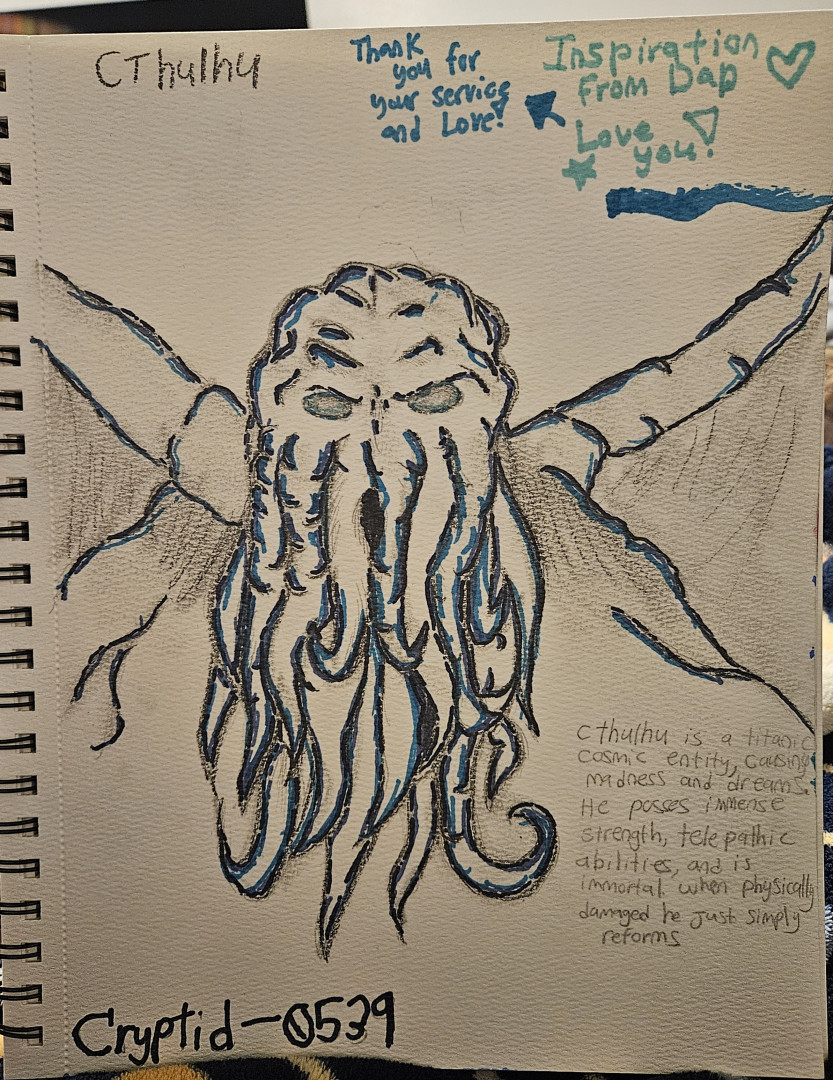 CThulhu
Thank
you for
your service
and Love!
Inspiration
From Dap
Love
you!
Cthulhu is a titanic
cosmic entity, causing
madness and dreams.
He posses immense
strength, telepathic
abilities, and is
immortal. when physically
damaged he just simply
reforms
Cryptid-0539